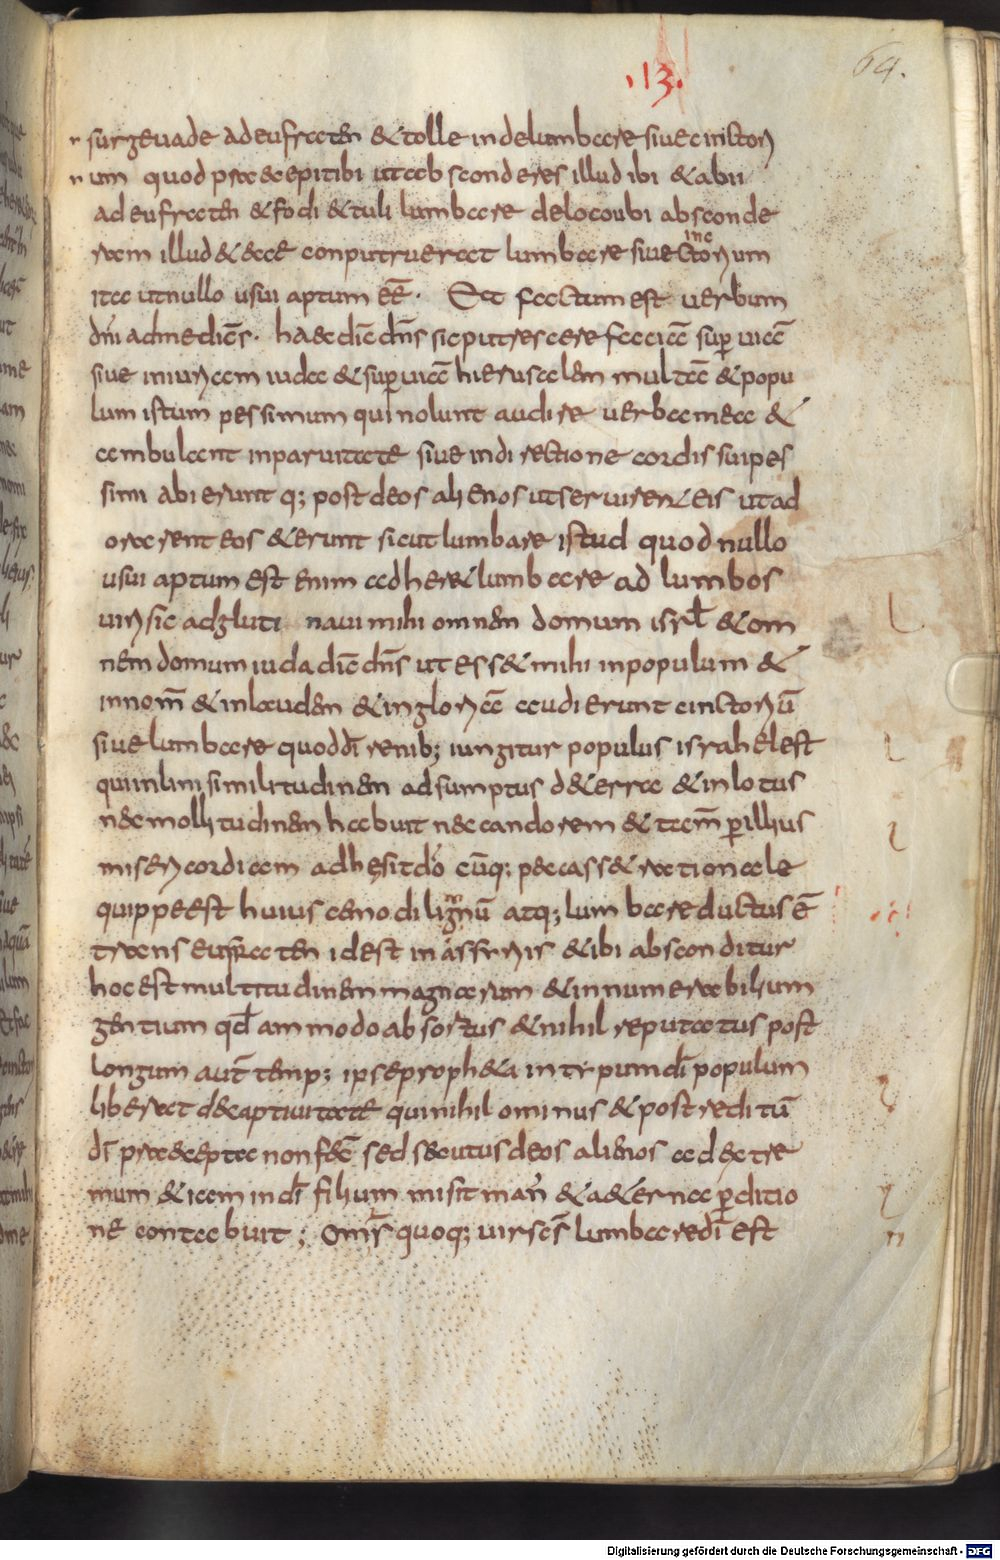 .13.
64.
surge vade ad eufraten & tolle inde lumbare sive cinctori
um quod praecepi tibi ut absconderes illud ibi & abii
ad eufraten & fodi & tuli lumbare de loco ubi absconde
ram illud & ecce conputruerat lumbare sive cinctorium
ita ut nullo usui aptum eē. Et factum est verbum
dni ad me dicēs. haec diē dn̄s sic putrescere faciā sup̄ viā
sive iniuriam iuda & sup̄ viā hierusalem multā & popu
lum istum pessimum qui nolunt audire verba mea &
ambulant in paruitate sive in directione cordis sui pes
simi abierunt q; post deos alienos ut servirent eis ut ad
orarent eos & erunt sicut lumbare istud quod nullo
usui aptum est enim adher& lumbare ad lumbos
viri sic adgluti navi mihi omnem domum isrl̄ & om
nem domum iuda diē dn̄s ut ess& mihi in populum &
in nom̄ & in laudem & in gloriā audierunt cinctoriū
sive lumbare quod dī renib; iungitur populus israhel est
qui in lini similitudinem adsumptus d&erra & inlotus
nec mollitudinem habuit nec candorem & tam̄ p illius
misericordiam adhesit dō cūq; peccass& rationale
quippe est huius cenodi lignū atq; lumbare ductus ē
trans eufraten id est in assiriis & ibi absconditur
hoc est multitudinem magnarum & innumerabilium
gentium qd̄ ammodo absortus & nihil reputatus post
longum aut̄ temp; ipse proph&a in tipum dī populum
liberat de captivitate qui nihilominus & post reditū
dī praecepta non fec̄ sed secutus deos alienos ad extre
mum & iam in dī filium misit man̄ & a&erna pditio
ne contabuit; Omīs quoq; vir scs̄ lumbare dī est
Digitalisierung gefördert durch die Deutsche Forschungsgemeinschaft - DFG